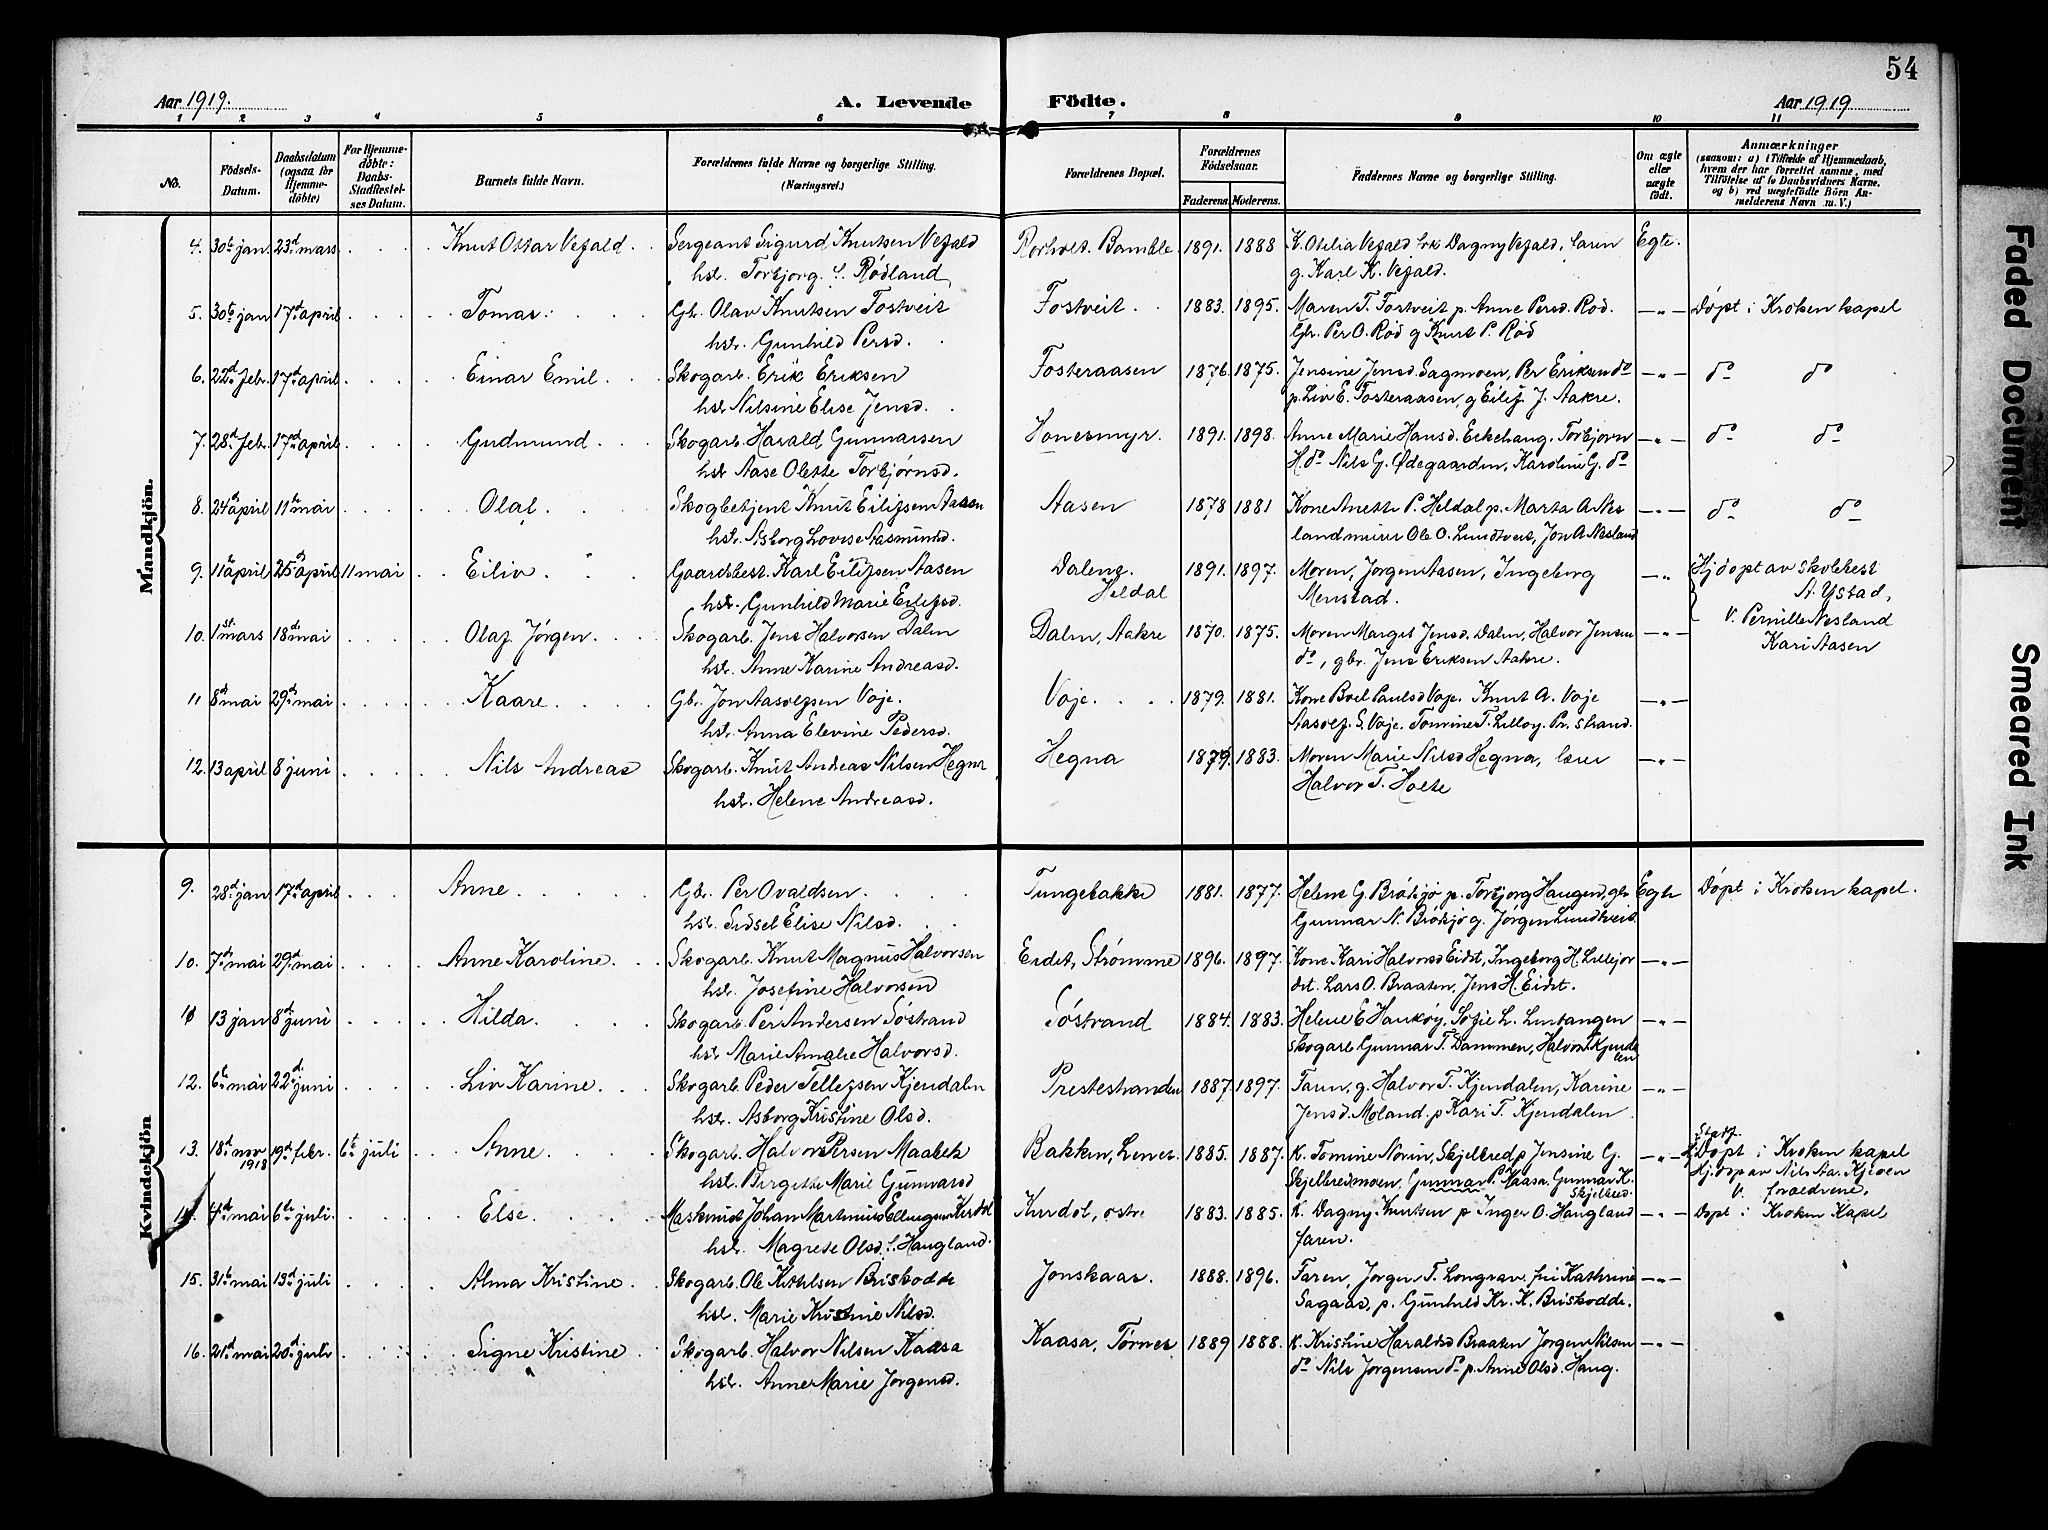 54
Aar 1919.
A. Levende Födte.
Aar 1919
1 2 3 4 5 6 7 8 9 10 11
No.
Födsels-Datum.
Daabsdatum (ogsaa for Hjemme-döbte)
For Hjemme-döbte: Daabs-Stadfæstel-ses Datum.
Barnets fulde Navn.
Forældrenes fulde Navne og borgerlige Stilling.
(Næringsvei.)
Forældrenes Bopæl.
Forældrenes Födselsaar.
Faderens. Moderens.
Faddernes Navne og borgerlige Stilling.
Om ægte eller uægte födt.
Anmærkninger
(saasom: a) i Tilfælde af Hjemmedaab,
hvem der har forrettet samme, med
Tilföielse af to Daabsvidners Navne,
og b) ved uægtefödte Börn An-
melderens Navn m. V.)
Mandkjön.
4. 30te jan 23d mars Knut Ottar Vefald Sergeant Sigurd Knutsen Vefald Rørholt. Bamble 1891. 1888 K. Otilia Vefald Dagny Vefald, faren Egte.
hst. Torbjorg f. Rødland g. Karl K. Vefald.
5. 30te jan 17d april Tomas. Gbr. Olav Knutsen Fostveit Fostveit 1883. 1895. Maren T. Fostveit p. Anne Persd. Rød. —"— Døpt i Kroken kapel
hst. Gunhild Persd. Gbr. Per O. Rød g Knut P. Rød
6. 22d febr. 17d april Einar Emil Skogarb. Erik Eriksen Fosteraasen 1876. 1875. Jensine Jensd. Sagmoen, Per Eriksen do —"— do do
hst. Nilsine Elise Jensd. p. Liv E. Fosteraasen, g Eilif J. Aakre.
7. 28d febr. 17d april Gudmund Skogarb. Harald Gunnarsen Vonesmyr. 1891. 1898. Anne Marie Hansd. Torbjorn —"— do do
hst. Aase Olette Torbjørnsd. H. do Nils G. Ødegaarden, Karoline G. do
8. 24d april 11te mai Olaf Skogbetjent Knut Eilifsen Aasen Aasen 1878 1881 Kone Anette P. Heldal p. Marta A. Nes —"— do do
hst. Asborg Lovise Aasmundsd. land murer Ole O. Lundtveit, Jon A Nesland
9. 11te april 25d april 11 mai Eiliv. Gaardbest. Karl Eilifsen Aasen Daleng. 1891. 1897. Moren, Jørgen Aasen, Ingeborg —"— Hjdøpt av skolebest
hst. Gunhild Marie Eilifsd. Heldal Menstad. A. Ystad,
10. 1st mars 18d mai Olaf Jørgen Skogarb. Jens Halvorsen Dalen Dalen, Aakre 1870. 1875. Moren Margit Jensd. Dalen, Halvor Jensen —"— V. Pernille Nesland
hst. Anne Karine Andreasd. do, gbr. Jens Eriksen Aakre. Kari Aasen
11 8d mai 29d mai Kaare Gbr. Jon Aasolfsen Voje. Voje. 1879. 1881. Kone Boel Paulsd Voje. Knut A. Voje —"—
hst. Anna Elevine Pedersd. Aasolf. S. Voje. Tomine T. Lilloy. Pr. strand.
12. 13 april 8 juni Nils Andreas Skogarb. Knut Andreas Nilsen Hegna Hegna 1879. 1883. Moren Marie Nilsd Hegna, lærer —"—
hst. Helene Andreasd. Halvor T. Holte
Kvindekjön
9. 28d jan 17d april Anne Gbr. Per Ovaldsen Tungebakke 1881. 1877. Helene G. Bråtsjø p. Torbjorg Haugen, gbr Egte Døpt i Kroken kapel.
hst. Sidsel Elise Nilsd. Gunnar N. Bråtsjø g. Jørgen Lundtveit
10. 7d mai 29d mai Anne Karoline Skogarb. Knut Magnus Halvorsen Eidet, Strømme 1896. 1897. Kone Kari Halvorsd Eidet, Ingeborg H. Lillejor —"—
hst. Josefine Halvorsen det. Lars O. Braaten, Jens H. Eidet.
11 13 jan 8d juni Hilda. Skogarb. Per Andersen Søstrand Søstrand 1884. 1883. Helene E Haukøy, Sofie L. Lentangen —"—
hst Marie Amalie Halvorsd. skogarb Gunnar T. Dammen, Halvor T Kjenda
len
12. 6te mai 22d juni Liv Karine Skogarb. Peder Tellefsen Kjendalen Prestestranden 1887. 1897. Faren, g. Halvor T. Kjendalen, Karine —"—
hst. Asborg Kristine Olsd. Jensd. Moland. p Kari T. Kjendalen
13. 18d nov 1918 19d febr. 6te juli Anne. Skogarb. Halvor Persen Maabek Bakken, Lenes. 1885. 1887. K. Tomine Norin, Skjelbred p Jensine G. —"— Stadf.
Døpt i Kroken kapel
hst. Birgitte Marie Gunnarsd Skjelbredmoen, Gunnar P. Kaasa. Gunnar K. Skjelbred. Hjdøp av Nils Aa. Kjeven
V. forældrene.
14. 4d mai 6te juli. Else Maskinist Johan Martinius Ellingsen Kurdøl Kurdøl, østre 1883. 1885. K. Dagny Knutsen p Inger O. Haugland —"— Døpt i Kroken Kapel
hst. Magrete Olsd. f. Haugland. faren.
15. 31te mai 13d juli Alma Kristine Skogarb. Ole Kittilsen Briskodde Jonskaas. 1888. 1896. Faren, Jorgen T. Longrav, Kathrine —"—
hst. Marie Kristine Nilsd. Sagaas, p. Gunhild Kr. K. Briskodde.
16. 21d mai 20d juli Signe Kristine Skogarb. Halvor Nilsen Kaasa Kaasa, Tørnes 1889 1888. K. Kristine Haraldsd Braaten Jorgen Nilsen —"—
hst. Anne Marie Jorgensd. do Nils Jorgensen do p. Anne Olsd. Haug.
Faded Document
Smeared Ink